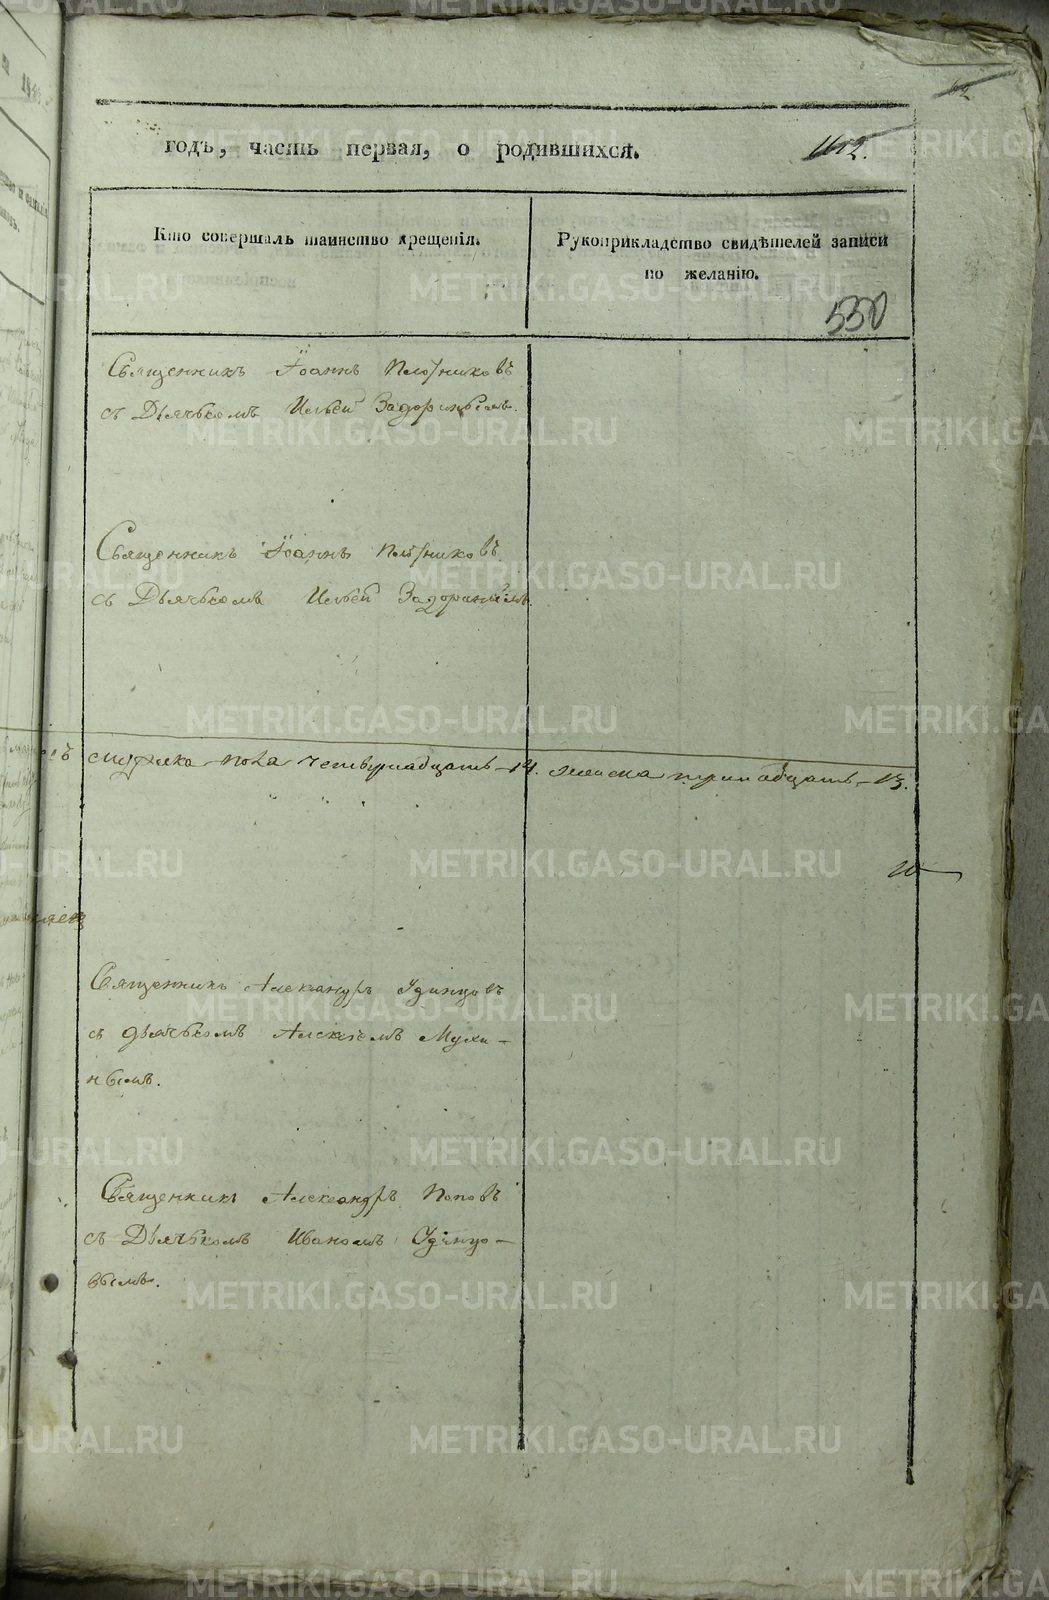 годъ, часть первая, о родившихся.
112.
Кто совершалъ таинство крещенія.
Рукоприкладство свидѣтелей записи
по желанію.
550
Священникъ Іоаннъ Плотниковъ
съ Дьячькомъ Ильей Задоринымъ.
Священникъ Іоаннъ Плотниковъ
съ Дьячькомъ Ильей Задоринымъ.
мужеска пола четырнадцать 14. женска тринадцать 13.
Священникъ Александръ Удинцовъ
съ дьячькомъ Алексіемъ Мухи-
нымъ.
Священникъ Александръ Поповъ
съ Дьячькомъ Иваномъ Удинцо-
вымъ.
METRIKI.GASO-URAL.RU